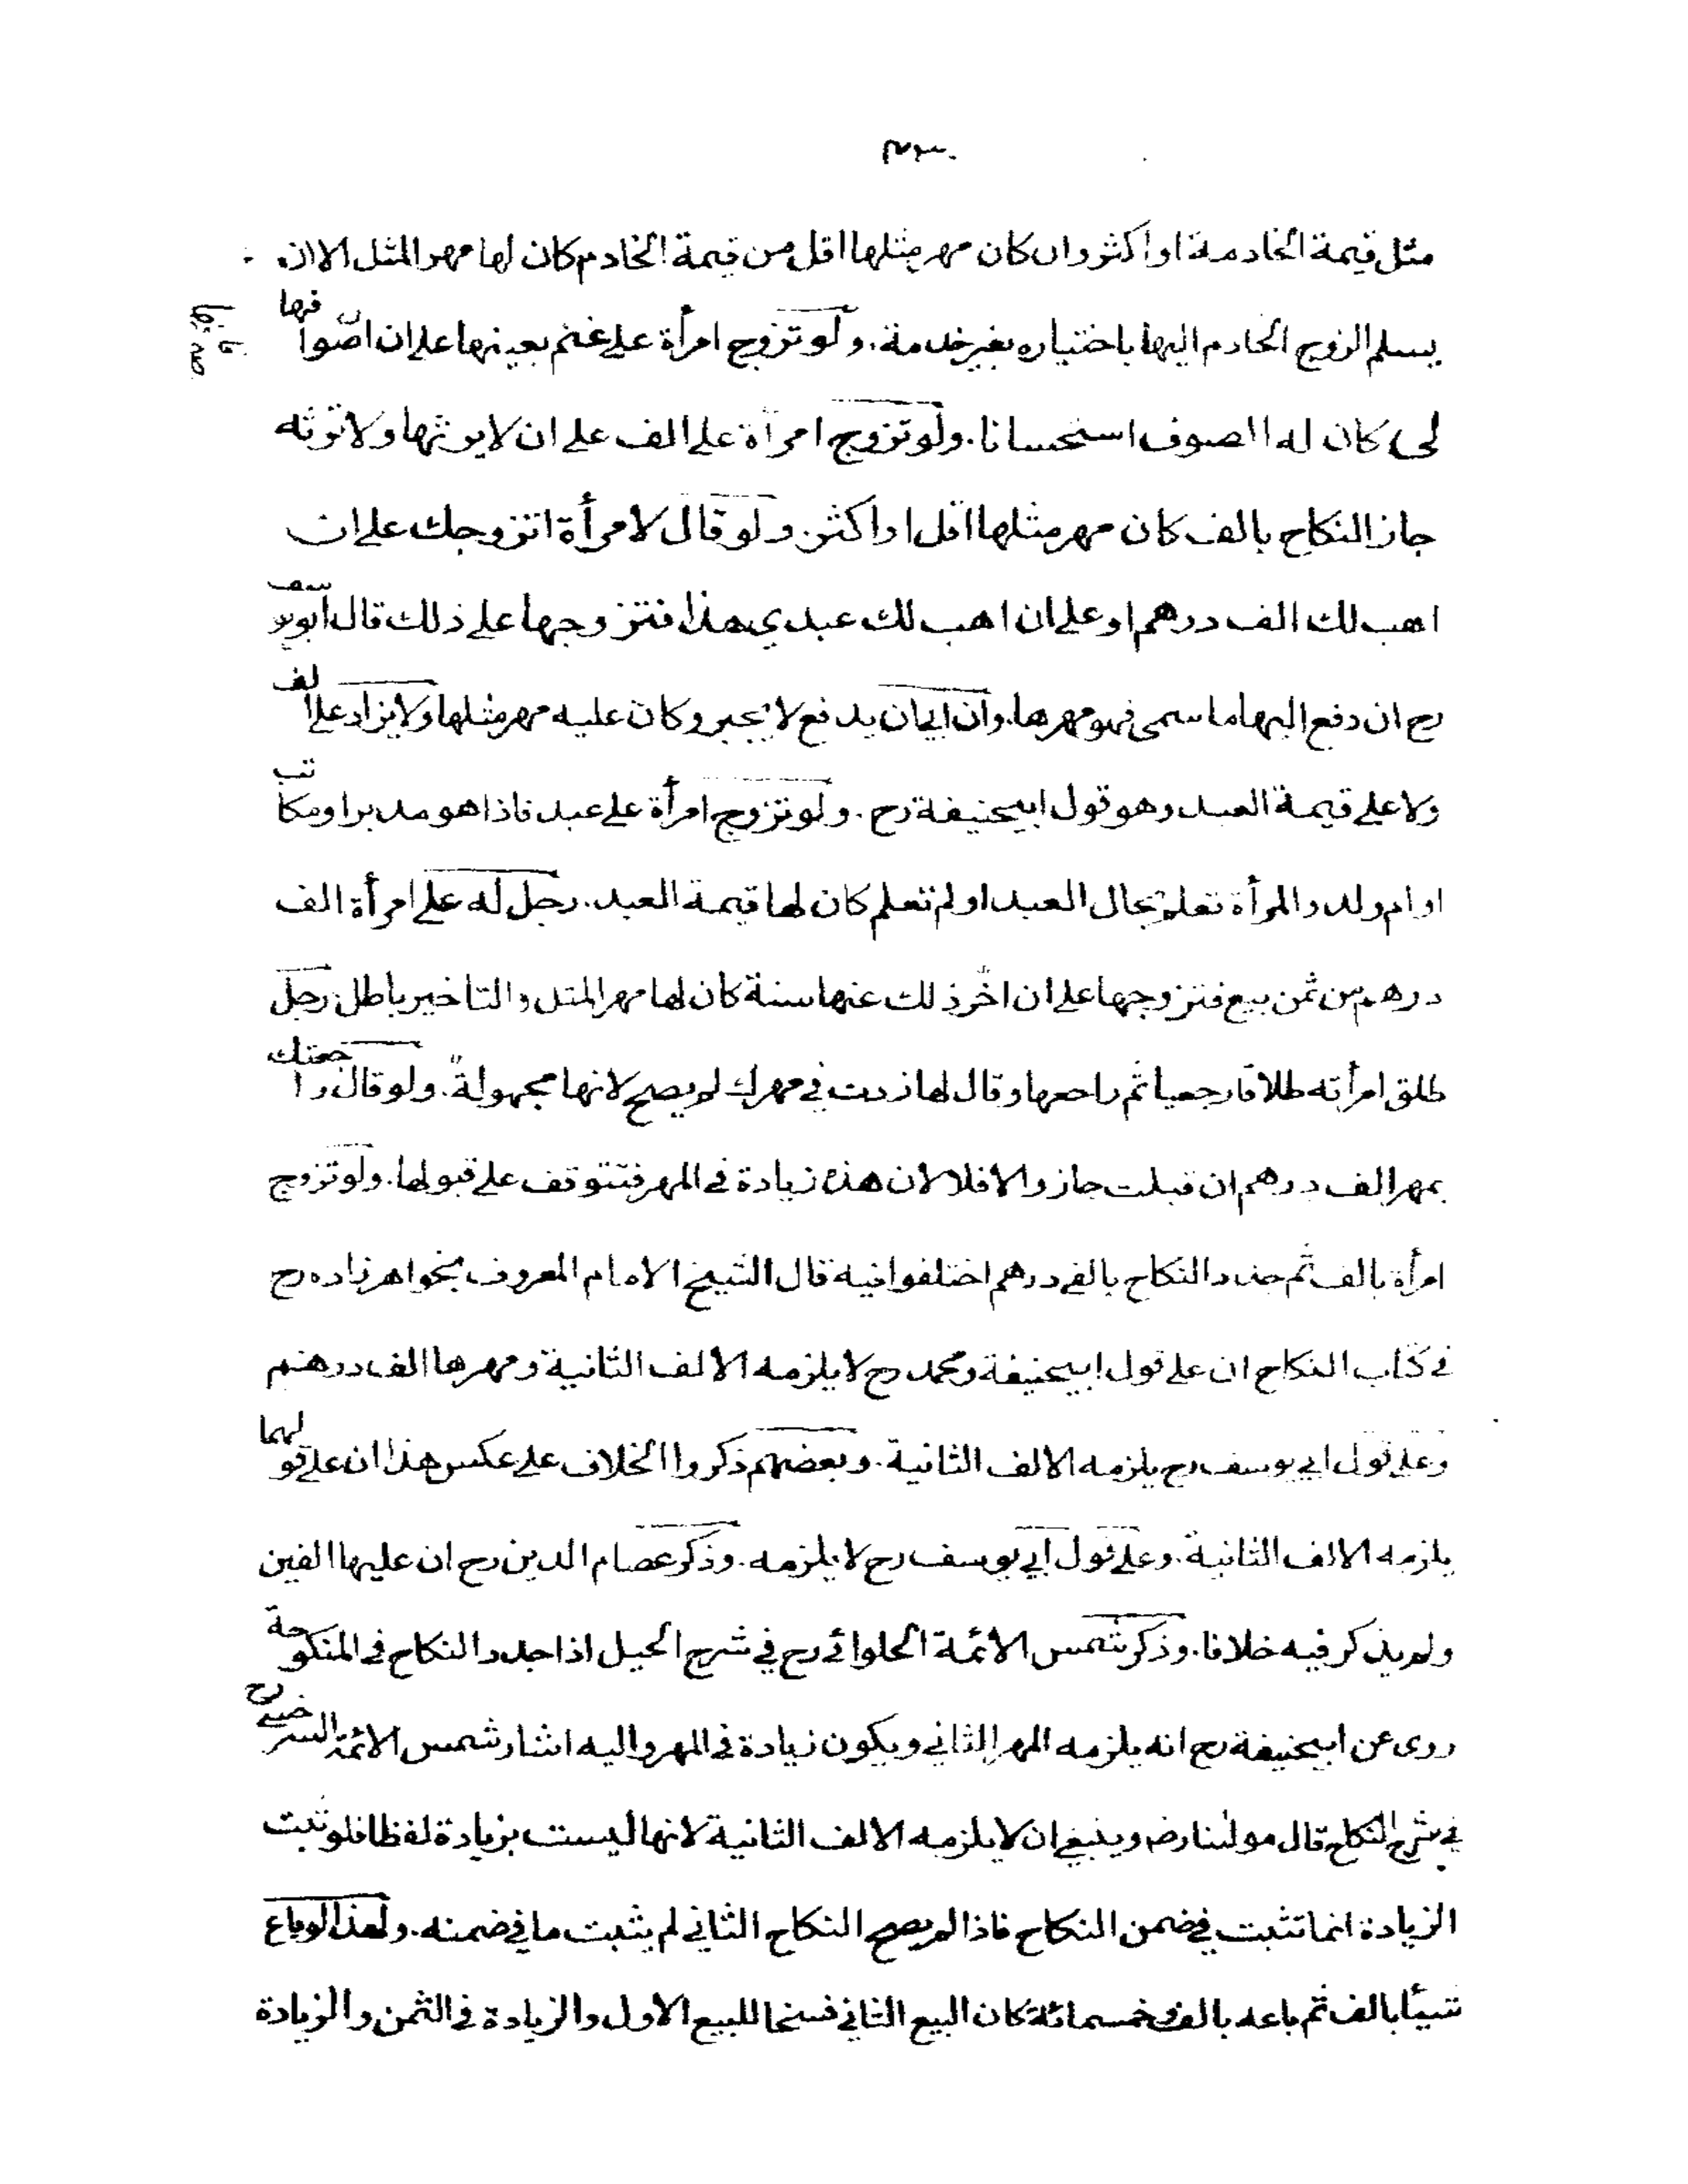 مثل قيمة الخادمة او اكثر وان كان مهر مثلها اقل من قيمة الخادم كان لها مهر المثل الا ان
يسلم الزوج الخادم اليها باختياره بغير خدمة. ولو تزوج امرأة على غنم بعينها على ان اصوافها
لى كان له الصوف استحسانا. ولو تزوج امرأة على الف على ان لا يرثها ولا ترثه
جاز النكاح بالف كان مهر مثلها اقل او اكثر. ولو قال لامرأة اتزوجك على ان
اهب لك الف درهم او على ان اهب لك عبدي هذا فتزوجها على ذلك قال ابو يوسف
رح ان دفع اليها ما سمى فهو مهرها. وان ابى ان يدفع لا يجبر وكان عليه مهر مثلها ولا يزاد على الف
ولا على قيمة العبد وهو قول ابيحنيفة رح. ولو تزوج امرأة على عبد فاذا هو مدبر او مكاتب
او ام ولد والمرأة تعلم بحال العبد او لم تعلم كان لها قيمة العبد. رجل له على امرأة الف
درهم من ثمن بيع فتزوجها على ان اخّر ذلك عنها سنة كان لها مهر المثل والتاخير باطل. رجل
طلق امرأته طلاقا رجعيا ثم راجعها وقال لها زدت في مهرك لم يصح لانها مجهولة. ولو قال راجعتك
بمهر الف درهم ان قبلت جاز والا فلا لان هذه زيادة في المهر فتتوقف على قبولها. ولو تزوج
امرأة بالف ثم جدد النكاح بالف درهم اختلفوا فيه قال الشيخ الامام المعروف بخواهر زاده رح
في كتاب النكاح ان على قول ابيحنيفة ومحمد رح لا يلزمه الالف الثانية ومهرها الف درهم
وعلى قول ابي يوسف رح يلزمه الالف الثانية. وبعضهم ذكروا الخلاف على عكس هذا ان على قولهما
يلزمه الالف الثانية. وعلى قول ابي يوسف رح لا يلزمه. وذكر عصام الدين رح ان عليها الفين
ولم يذكر فيه خلافا. وذكر شمس الائمة الحلوائي رح في شرح الحيل اذا جدد النكاح في المنكوحة
روى عن ابيحنيفة رح انه يلزمه المهر الثاني ويكون زيادة في المهر واليه اشار شمس الائمة السرخسي رح
في شرح النكاح قال مولٰنا رضـ وينبغي ان لا يلزمه الالف الثانية لانها ليست بزيادة لفظا فلو ثبت
الزيادة انما تثبت في ضمن النكاح فاذا لم يصح النكاح الثاني لم يثبت ما في ضمنه. ولهذا لو باع
شيئا بالف ثم باعه بالف وخمسمائة كان البيع الثاني فسخا للبيع الاول والزيادة في الثمن والزيادة